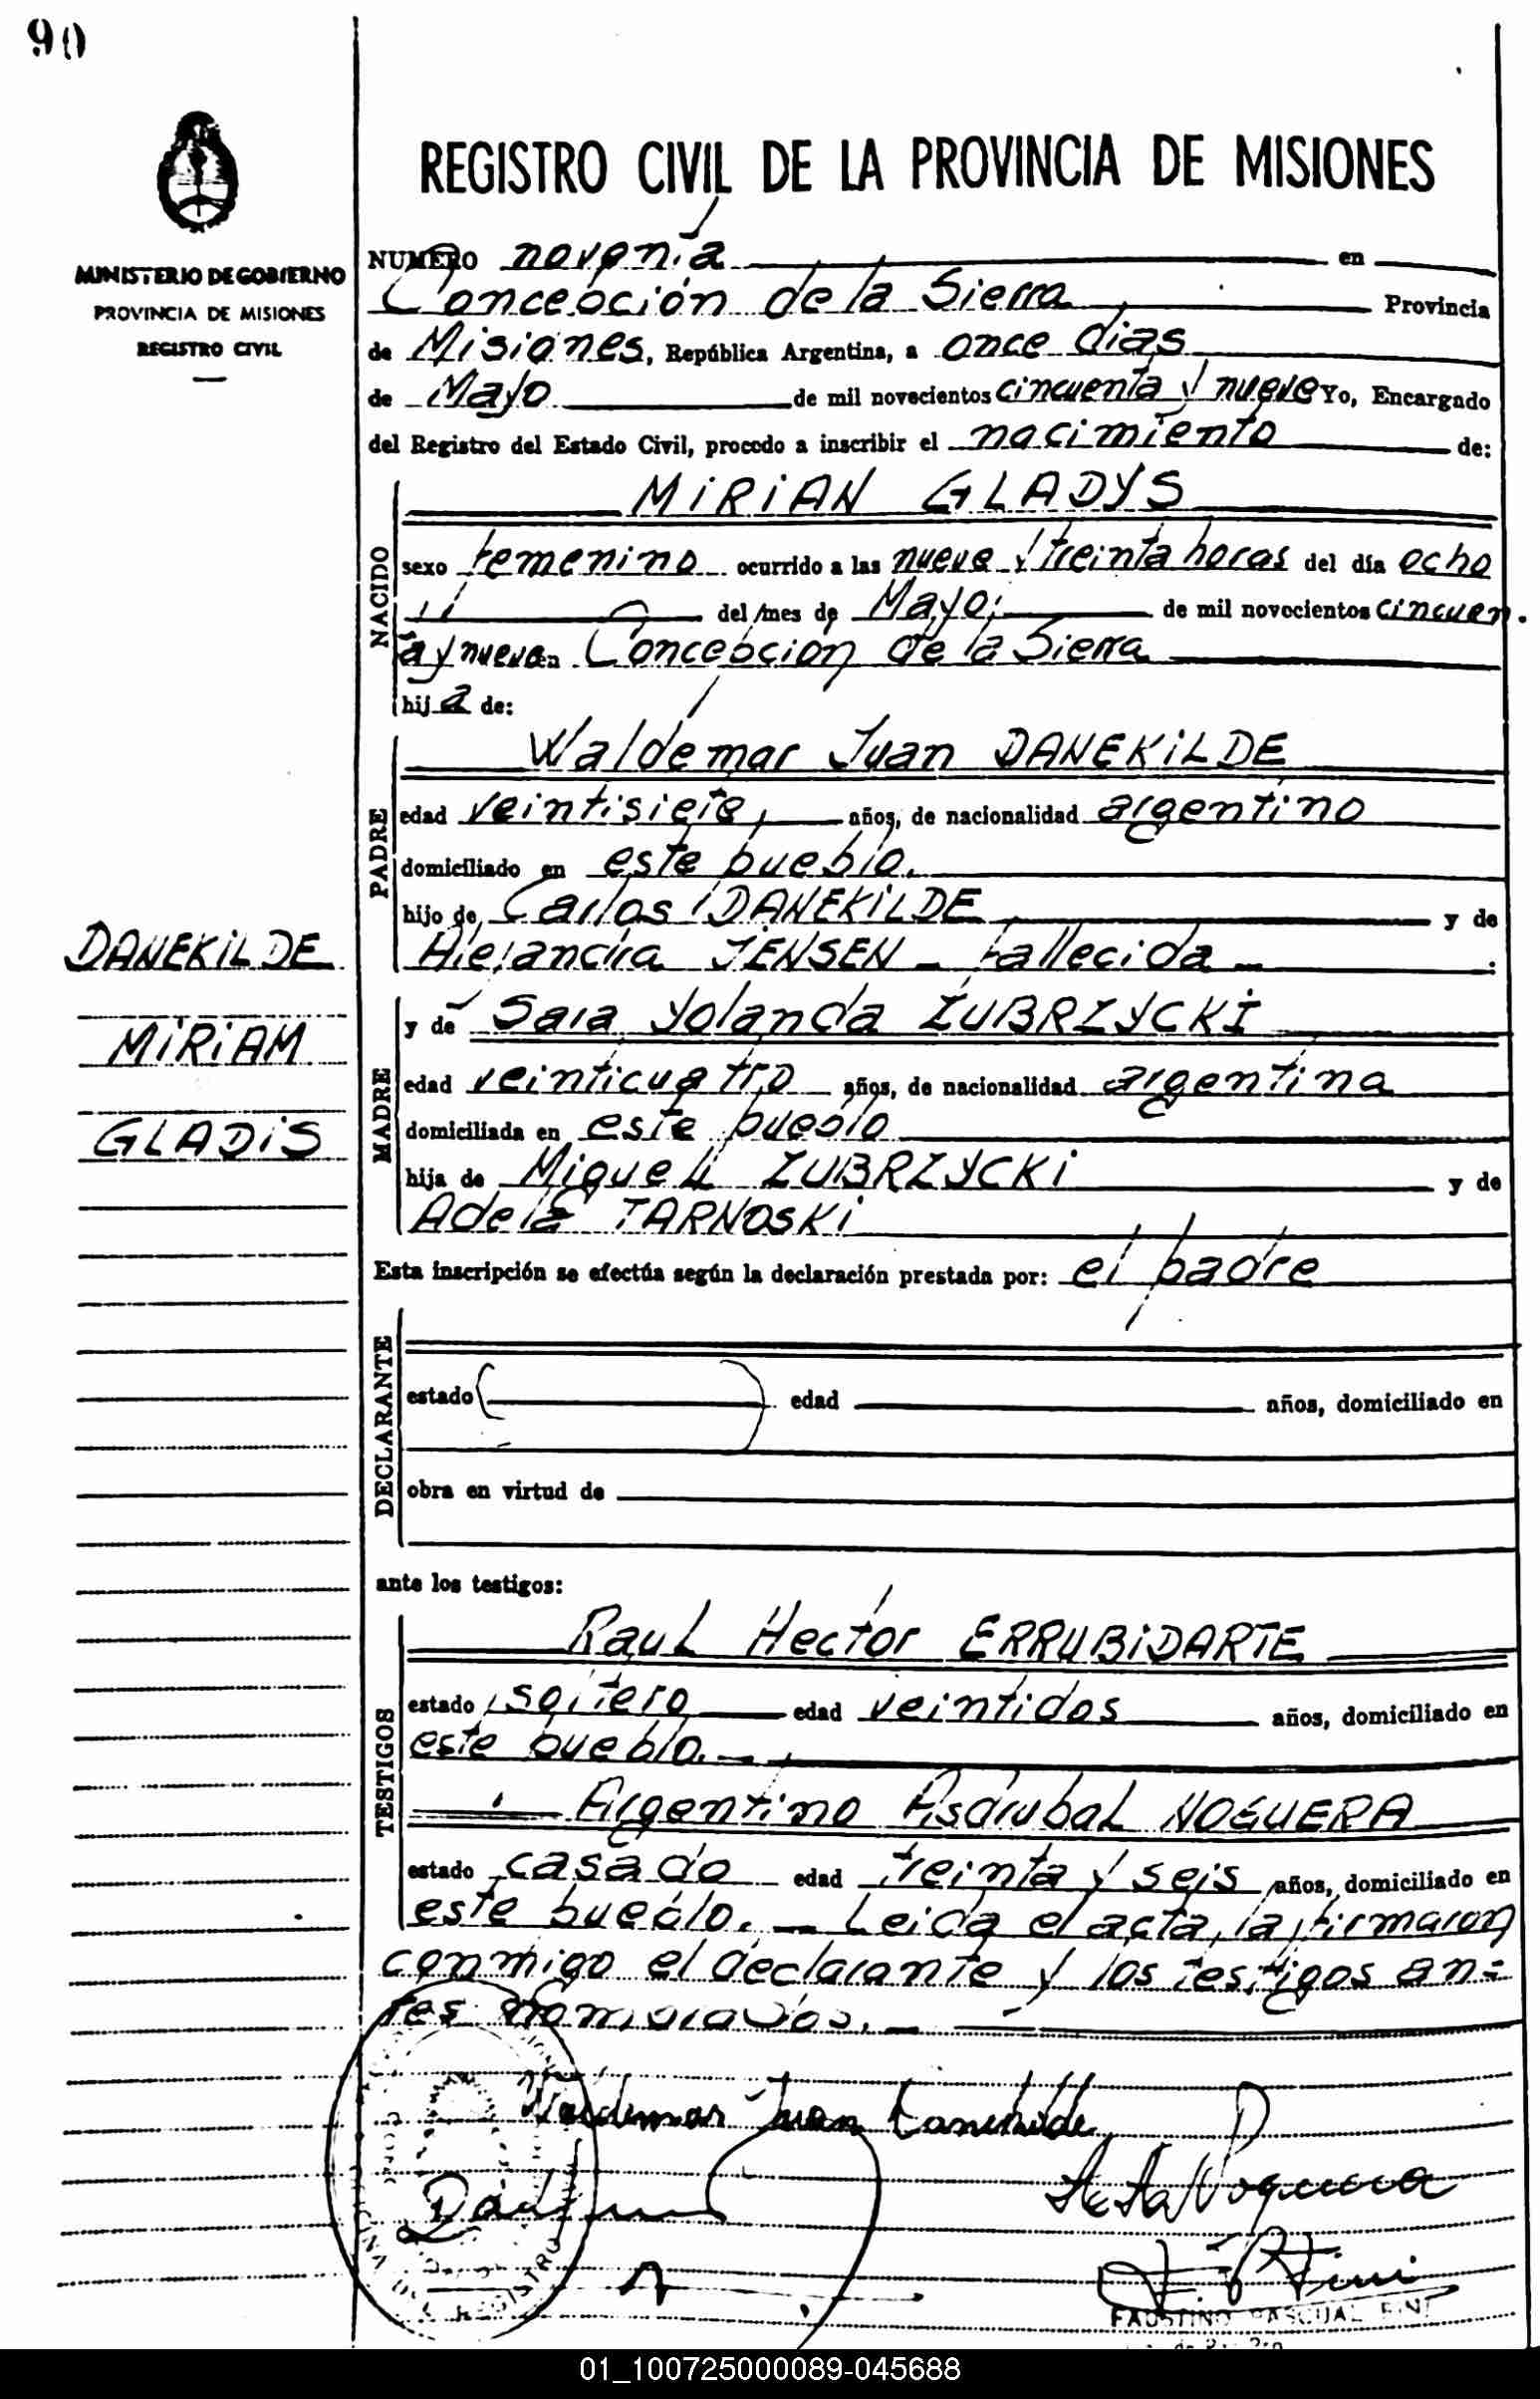 90
REGISTRO CIVIL DE LA PROVINCIA DE MISIONES
MINISTERIO DE GOBIERNO
PROVINCIA DE MISIONES
REGISTRO CIVIL
NUMERO noventa en
Concepción de la Sierra Provincia
de Misiones, República Argentina, a once días
de Mayo de mil novecientos cincuenta y nueve Yo, Encargado
del Registro del Estado Civil, procedo a inscribir el nacimiento de:
NACIDO
MiRiAN GLADYS
sexo femenino ocurrido a las nueve y treinta horas del día ocho
del mes de Mayo de mil novecientos cincuen
ta y nueve en Concepción de la Sierra
hija de:
PADRE
Waldemar Juan DANEKiLDE
edad veintisiete, años, de nacionalidad argentino
domiciliado en este pueblo.
hijo de Carlos DANEKiLDE y de
Alejandra JENSEN - fallecida -
DANEKiLDE
MiRiAM
GLADiS
MADRE
y de Sara Yolanda ZUBRZYCKi
edad veinticuatro años, de nacionalidad argentina
domiciliada en este pueblo
hija de Miguel ZUBRZYCKi y de
Adela TARNOSKi
Esta inscripción se efectúa según la declaración prestada por: el padre
DECLARANTE
estado edad años, domiciliado en
obra en virtud de
ante los testigos:
TESTIGOS
Raul Hector ERRUBiDARTE
estado soltero edad veintidos años, domiciliado en
este pueblo.-
Argentino Asdrubal NOGUERA
estado casado edad treinta y seis años, domiciliado en
este pueblo. - Leida el acta, la firmaron
conmigo el declarante y los testigos an=
tes nombrados. -
Waldemar Juan Danekilde
FAUSTINO PASCUAL FINI
01_100725000089-045688